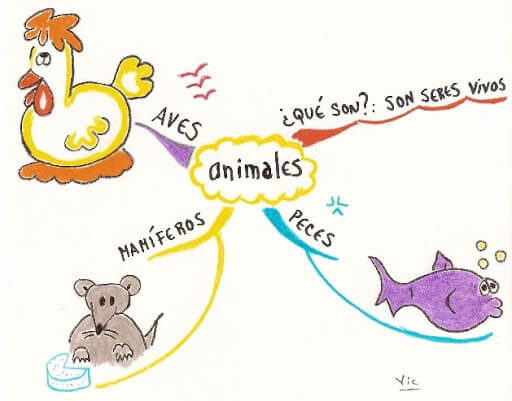 ¿QUÉ SON?: SON SERES VIVOS
AVES
animales
MAMÍFEROS
PECES
Vic